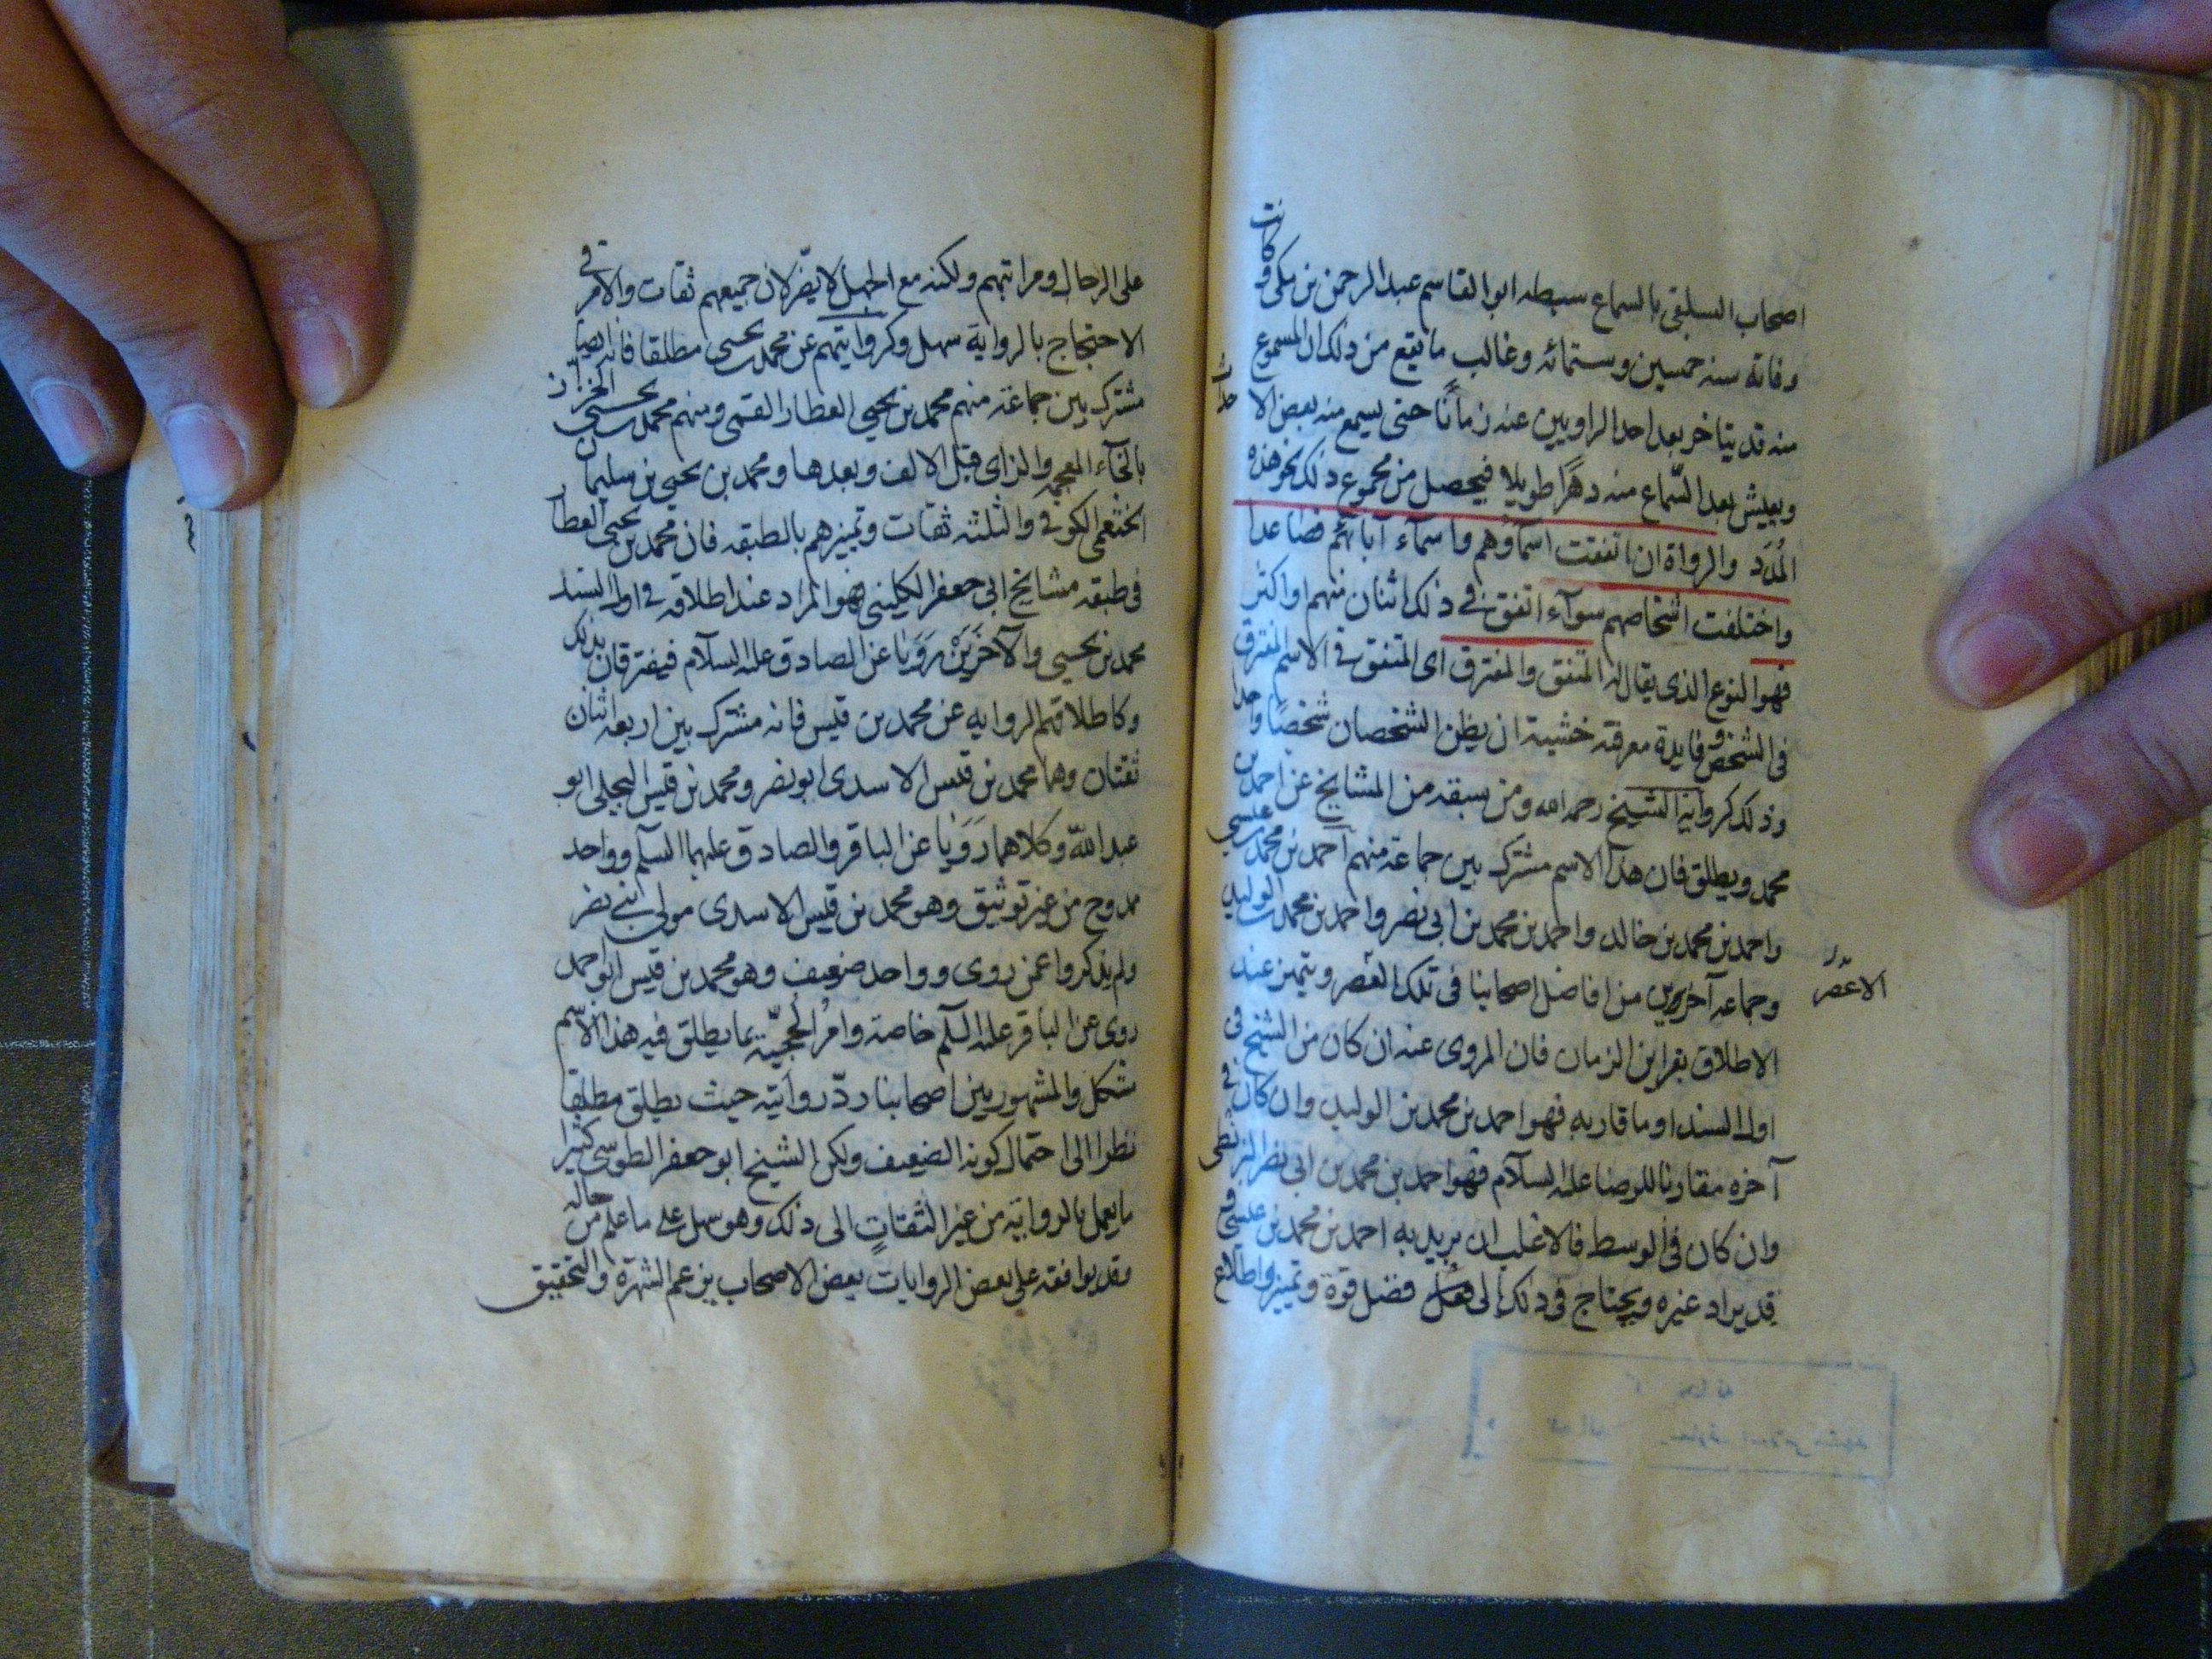 اصحاب السلفی بالسماع سبطه ابوالقاسم عبدالرحمن بن مکی و کانت
وفاته سنه خمسین وستمائه وغالب ما یقع من ذلک ان المسموع
منه قد یتاخر بعد احد الراویین عنه زمانًا حتی یسمع منه بعض الاحداث
ویعیش بعد السّماع منه دهرًا طویلا فیحصل من مجموع ذلک نحو هذه
المُدَد والرواة ان اتفقت اسماؤهم واسماء آبائهم فصاعدا
واختلفت اشخاصهم سوآء اتفق فی ذلک اثنان منهم او اکثر
فهو النوع الذی یقال له المتفق والمفترق ای المتفق فی الاسم المفترق
فی الشخص و فایدة معرفته خشیة ان یظن الشخصان شخصًا واحدا
وذلک کروایة الشیخ رحمه الله ومن سبقه من المشایخ عن احمد بن
محمد ویطلق فان هذا الاسم مشترک بین جماعة منهم احمد بن محمد بن عیسی
واحمد بن محمد بن خالد واحمد بن محمد بن ابی نصر واحمد بن محمد بن الولید
وجماعه آخرین من افاضل اصحابنا فی تلک العصر ویتمیز عند
الاعصر
الاطلاق بقراین الزمان فان المروی عنه ان کان من الشیخ فی
اول السند او ما قاربه فهو احمد بن محمد بن الولید وان کان فی
آخره مقارنا للرضا علیه السلام فهو احمد بن محمد بن ابی نصر البزنطی
وان کان فی الوسط فالاغلب ان یرید به احمد بن محمد بن عیسی و
قد یراد غیره ویحتاج فی ذلک الی فضل قوة وتمییز واطلاع
علی الرجال ومراتبهم ولکنه مع الجهل لا یضّر لان جمیعهم ثقات والامر فی
الاحتجاج بالروایة سهل وکروایتهم عن محمد بن یحیی مطلقا فانه ایضا
مشترک بین جماعة منهم محمد بن یحیی العطار القمی ومنهم محمد بن یحیی الخزاز
بالخآء المعجمة والزای قبل الالف وبعدها ومحمد بن یحیی بن سلیمان
الخثعمی الکوفی والثلثه ثقات وتمییزهم بالطبقه فان محمد بن یحیی العطار
فی طبقه مشایخ ابی جعفر الکلینی فهو المراد عند اطلاقه فی اول السند
محمد بن یحیی والآخَرَیْن رَوَیَا عن الصادق علیه السلام فیفترقان بذلک
وکاطلاقهم الروایه عن محمد بن قیس فانه مشترک بین اربعه اثنان
ثقتان وهما محمد بن قیس الاسدی ابو نصر ومحمد بن قیس البجلی ابو
عبدالله وکلاهما رَوَیا عن الباقر والصادق علیهما السلم وواحد
ممدوح من غیر توثیق وهو محمد بن قیس الاسدی مولی بنی نصر
ولم یذکروا عمن روی وواحد ضعیف وهو محمد بن قیس ابو احمد
روی عن الباقر علیه السلم خاصة وامرُ الحُجیّة بما یطلق فیه هذا الاسم
مشکل والمشهور بین اصحابنا ردّ روایته حیث یطلق مطلقا
نظرا الی احتمال کونه الضعیف ولکن الشیخ ابو جعفر الطوسی کثیرا
ما یعمل بالروایة من غیر التفات الی ذلک وهو سهل علی ما علم من حاله
وقد یوافقه علی بعض الروایات بعض الاصحاب بزعم الشهرة والتحقیق